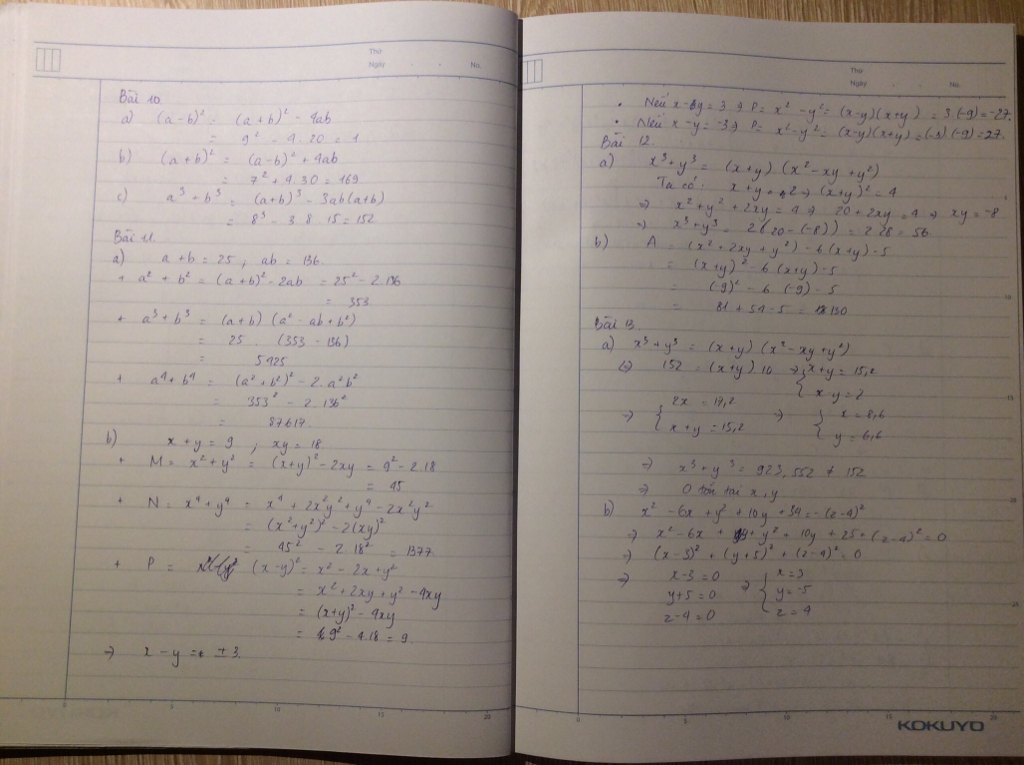 Thứ
Ngày . . No.
Bài 10.
a) (a-b)² = (a+b)² - 4ab
= 9² - 4.20 = 1
b) (a+b)² = (a-b)² + 4ab
= 7² + 4.30 = 169
c) a³ + b³ = (a+b)³ - 3ab(a+b)
= 8³ - 3.8.15 = 152
Bài 11.
a) a+b = 25 ; ab = 136
+ a² + b² = (a+b)² - 2ab = 25² - 2.136
= 353
+ a³ + b³ = (a+b) (a² - ab + b²)
= 25 . (353 - 136)
= 5425
+ a⁴ + b⁴ = (a² + b²)² - 2.a²b²
= 353² - 2.136²
= 87617.
b) x+y = 9 ; xy = 18.
+ M = x² + y² = (x+y)² - 2xy = 9² - 2.18
= 45
+ N = x⁴ + y⁴ = x⁴ + 2x²y² + y⁴ - 2x²y²
= (x² + y²)² - 2(xy)²
= 45² - 2.18² = 1377.
+ P = (x-y)² = x² - 2x + y²
= x² + 2xy + y² - 4xy
= (x+y)² - 4xy
= 9² - 4.18 = 9.
⇒ x - y = ± 3.
0 5 10 15 20
Thứ
Ngày . . No.
• Nếu x-y = 3 ⇒ P = x² - y² = (x-y)(x+y) = 3.(-9) = -27.
• Nếu x-y = -3 ⇒ P = x² - y² = (x-y)(x+y) = (-3)(-9) = 27.
Bài 12.
a) x³ + y³ = (x+y) (x² - xy + y²)
Ta có: x+y = 2 ⇒ (x+y)² = 4
⇒ x² + y² + 2xy = 4 ⇒ 20 + 2xy = 4 ⇒ xy = -8
⇒ x³ + y³ = 2(20 - (-8)) = 2.28 = 56
b) A = (x² + 2xy + y²) - 6(x+y) - 5
= (x+y)² - 6(x+y) - 5
= (-9)² - 6 (-9) - 5
= 81 + 54 - 5 = 130
Bài 13.
a) x³ + y³ = (x+y) (x² - xy + y²)
⇔ 152 = (x+y) 10 ⇒ { x+y = 15,2
x-y = 2
⇒ { 2x = 17,2 ⇒ { x = 8,6
x+y = 15,2 y = 6,6
⇒ x³ + y³ = 923,552 ≠ 152
⇒ 0 tồn tại x, y
b) x² - 6x + y² + 10y + 34 = -(z-4)²
⇒ x² - 6x + 9 + y² + 10y + 25 + (z-4)² = 0
⇒ (x-3)² + (y+5)² + (z-4)² = 0
⇒ x-3 = 0 ⇒ { x = 3
y+5 = 0 y = -5
z-4 = 0 z = 4
0 5 10 15 20
KOKUYO